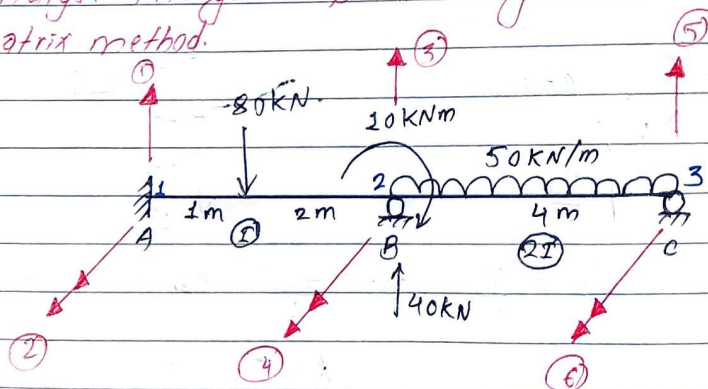 atrix method.
① ③ ⑤
80KN.
20KNm
50KN/m
1 2 3
1m 2m 4m
A Ⓘ B 2I C
40KN
② ④ ⑥